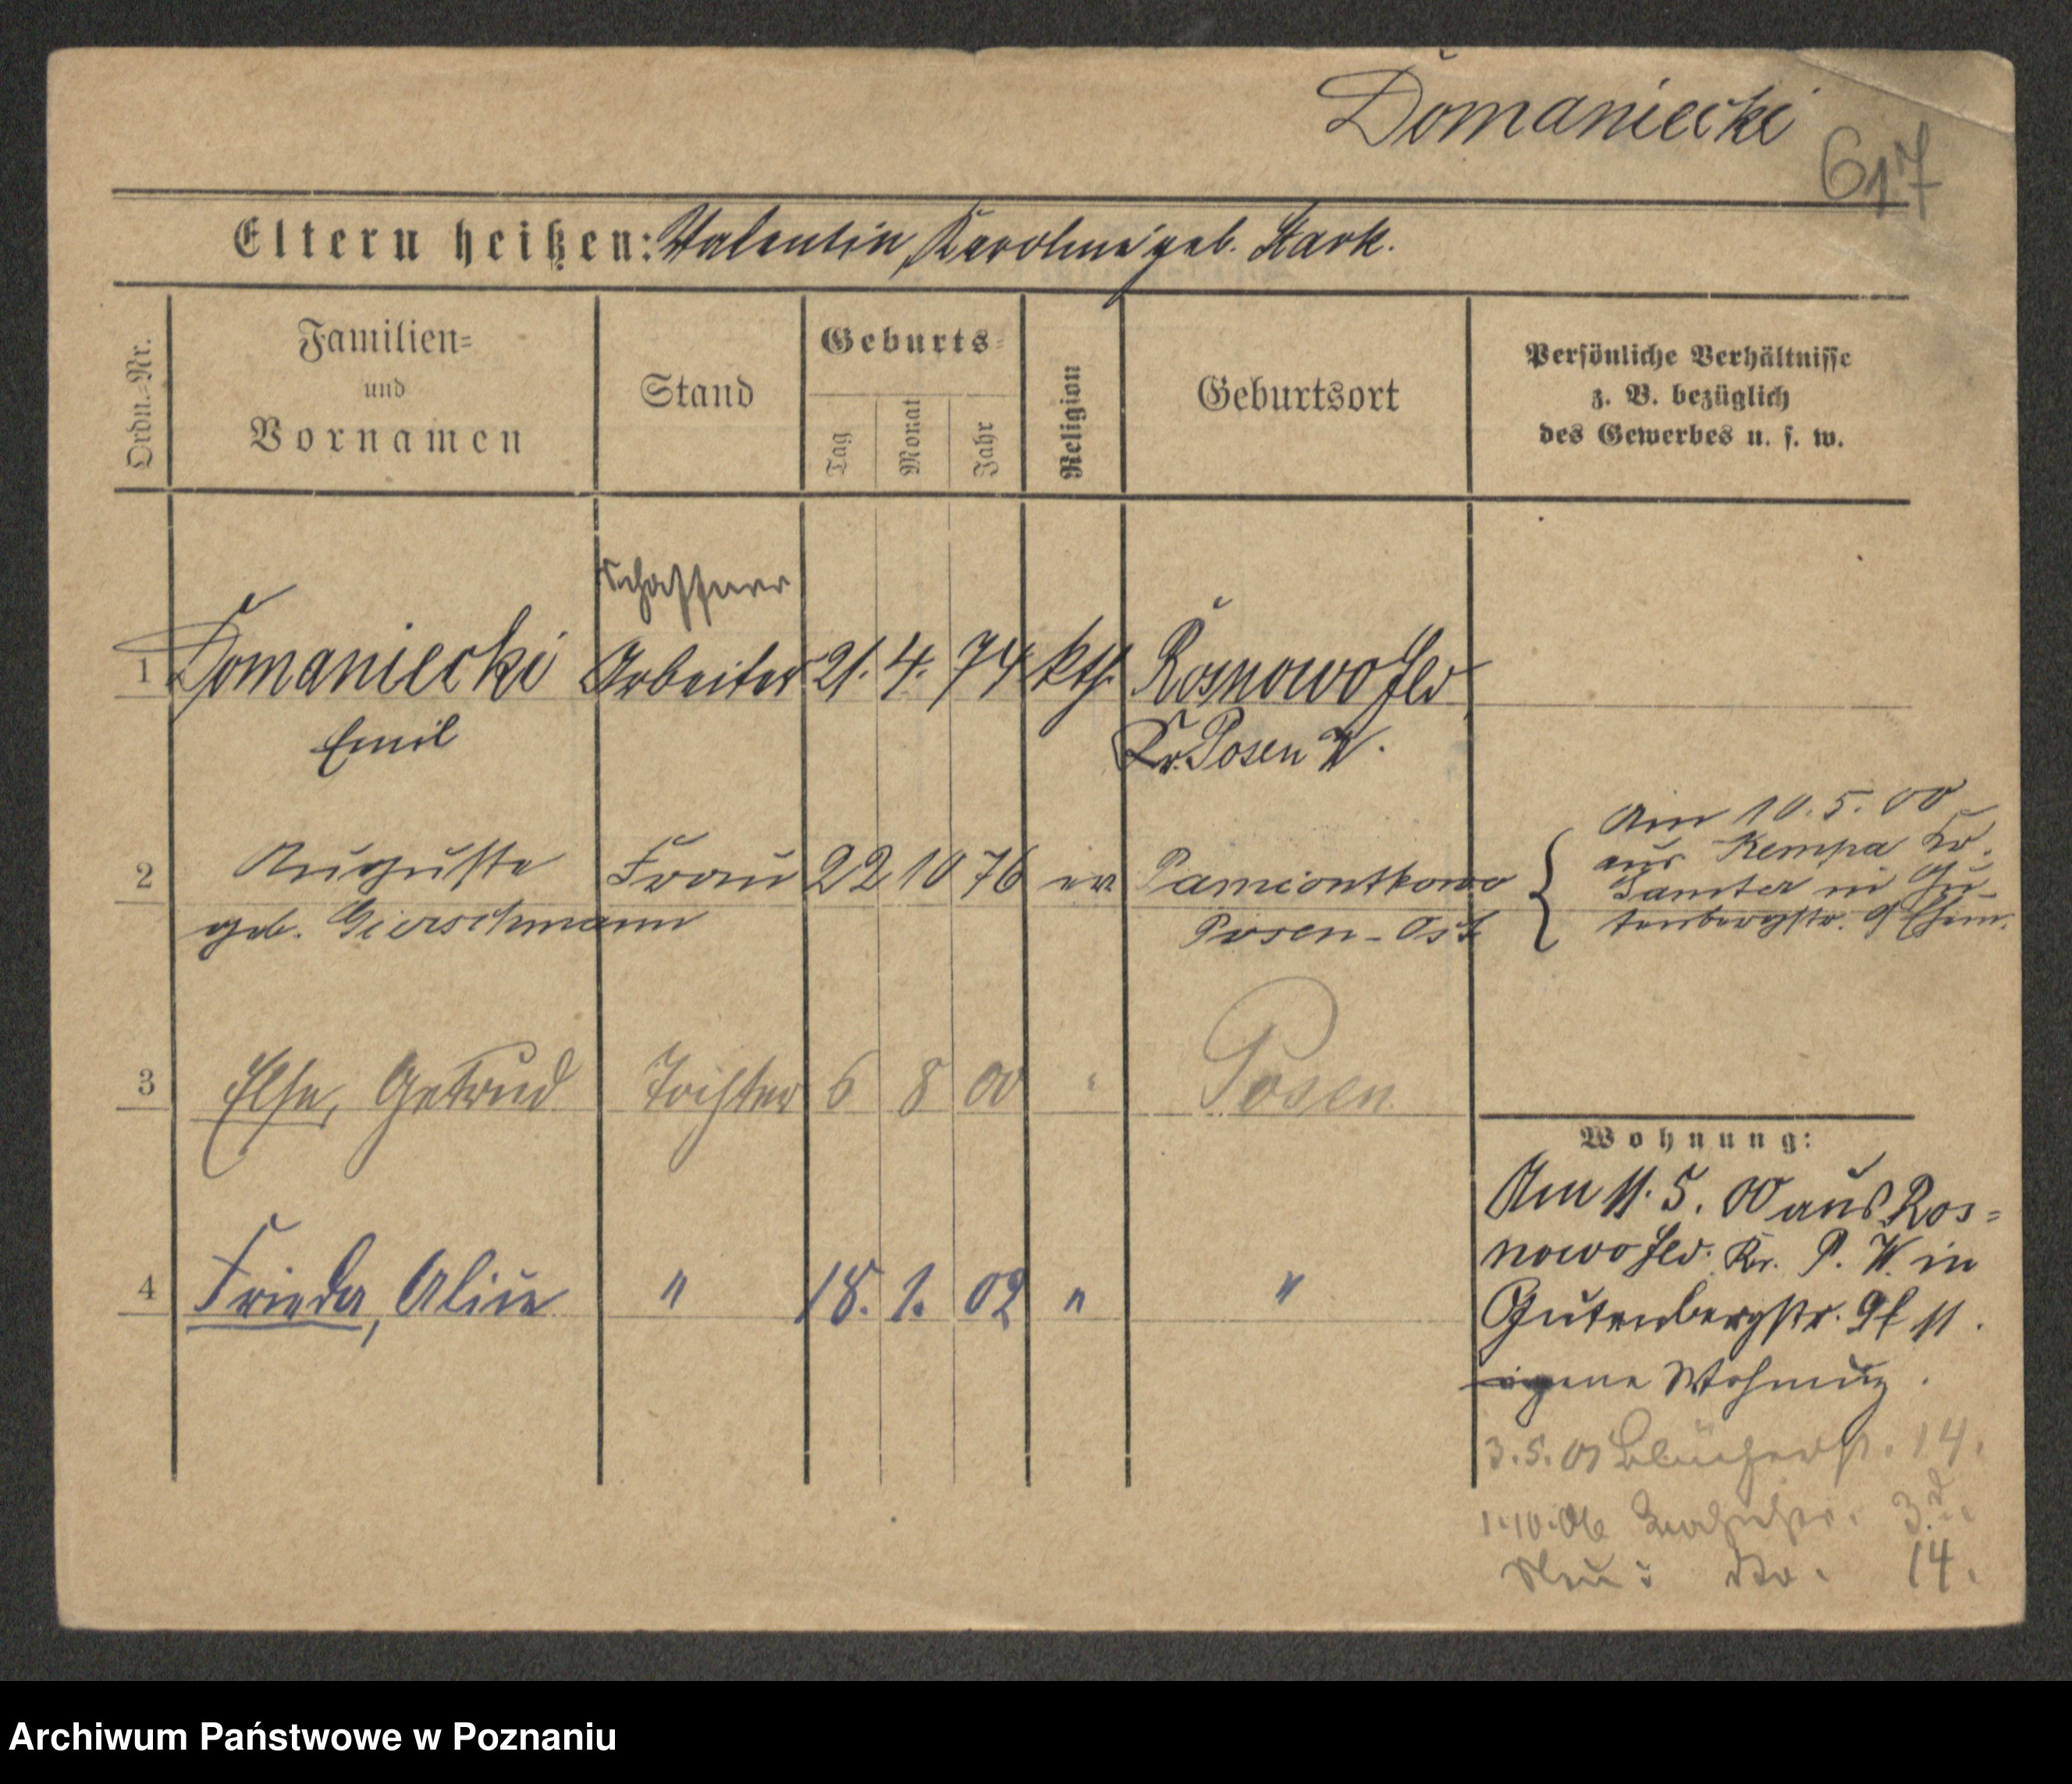 Domaniecki
617
Eltern heißen: Valentin, Karoline geb. Stark.
Ordn.-Nr.
Familien-
und
Vornamen
Stand
Geburts-
Tag
Monat
Jahr
Religion
Geburtsort
Persönliche Verhältnisse
z. B. bezüglich
des Gewerbes u. s. w.
Schaffner
1 Domaniecki Arbeiter 21. 4. 74 kth. Rosnowo Hld
Emil Kr. Posen W.
2 Auguste Frau 22 10 76 ev Pamiontkowo
geb. Gierschmann Posen-Ost
Am 10.5.00
aus Kempa Kr.
Samter in Gu-
tenbergstr. 9
3 Else, Getrud Tochter 6 8 00 " Posen
4 Frieda, Alice " 18. 1. 02 " "
Wohnung:
Am 11. 5. 00 aus Ros-
nowo Hld. Kr. P. W. in
Gutenbergstr. 9
eigene Wohnung.
3.5.01 Blücherstr. 14.
1.10.06 3.
Neu: No. 14.
Archiwum Państwowe w Poznaniu